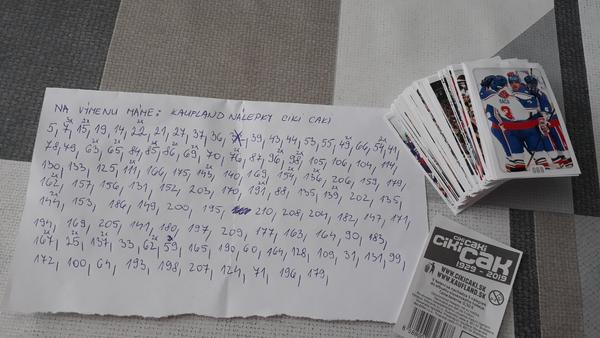 NA VÝMENU MÁME: KAUFLAND NÁLEPKY CIKI CAKI
5, 7, 15, 19, 14, 22, 21, 27, 37, 36, 39, 43, 44, 53, 55, 49, 66, 54, 41,
78, 49, 63, 65, 84, 85, 86, 69, 70, 76, 82, 96, 98, 105, 106, 104, 114,
130, 133, 125, 111, 166, 175, 143, 140, 169, 154, 136, 206, 159, 179,
162, 157, 156, 131, 152, 203, 170, 191, 88, 135, 139, 202, 135,
144, 153, 186, 149, 200, 195, 210, 208, 204, 182, 147, 171,
194, 169, 205, 141, 180, 197, 209, 177, 163, 164, 90, 183,
167, 25, 137, 33, 62, 59, 165, 190, 60, 164, 128, 109, 31, 131, 99,
172, 100, 64, 193, 198, 207, 124, 71, 196, 179,
CIKI CAKI
CIKI CAK
1929 - 2019
WWW.CIKICAKI.SK
WWW.KAUFLAND.SK